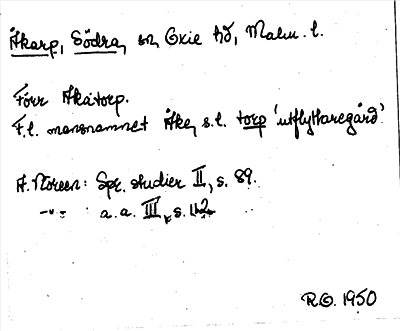 Åkarp, Södra, sn Oxie hd, Malm. l.
Förr Åkatorp.
F.l. mansnamnet Åke, s.l. torp 'utflyttaregård'.
A. Noreen: Spr. studier II, s. 89.
-"- : a.a. III, s.
R.G. 1950